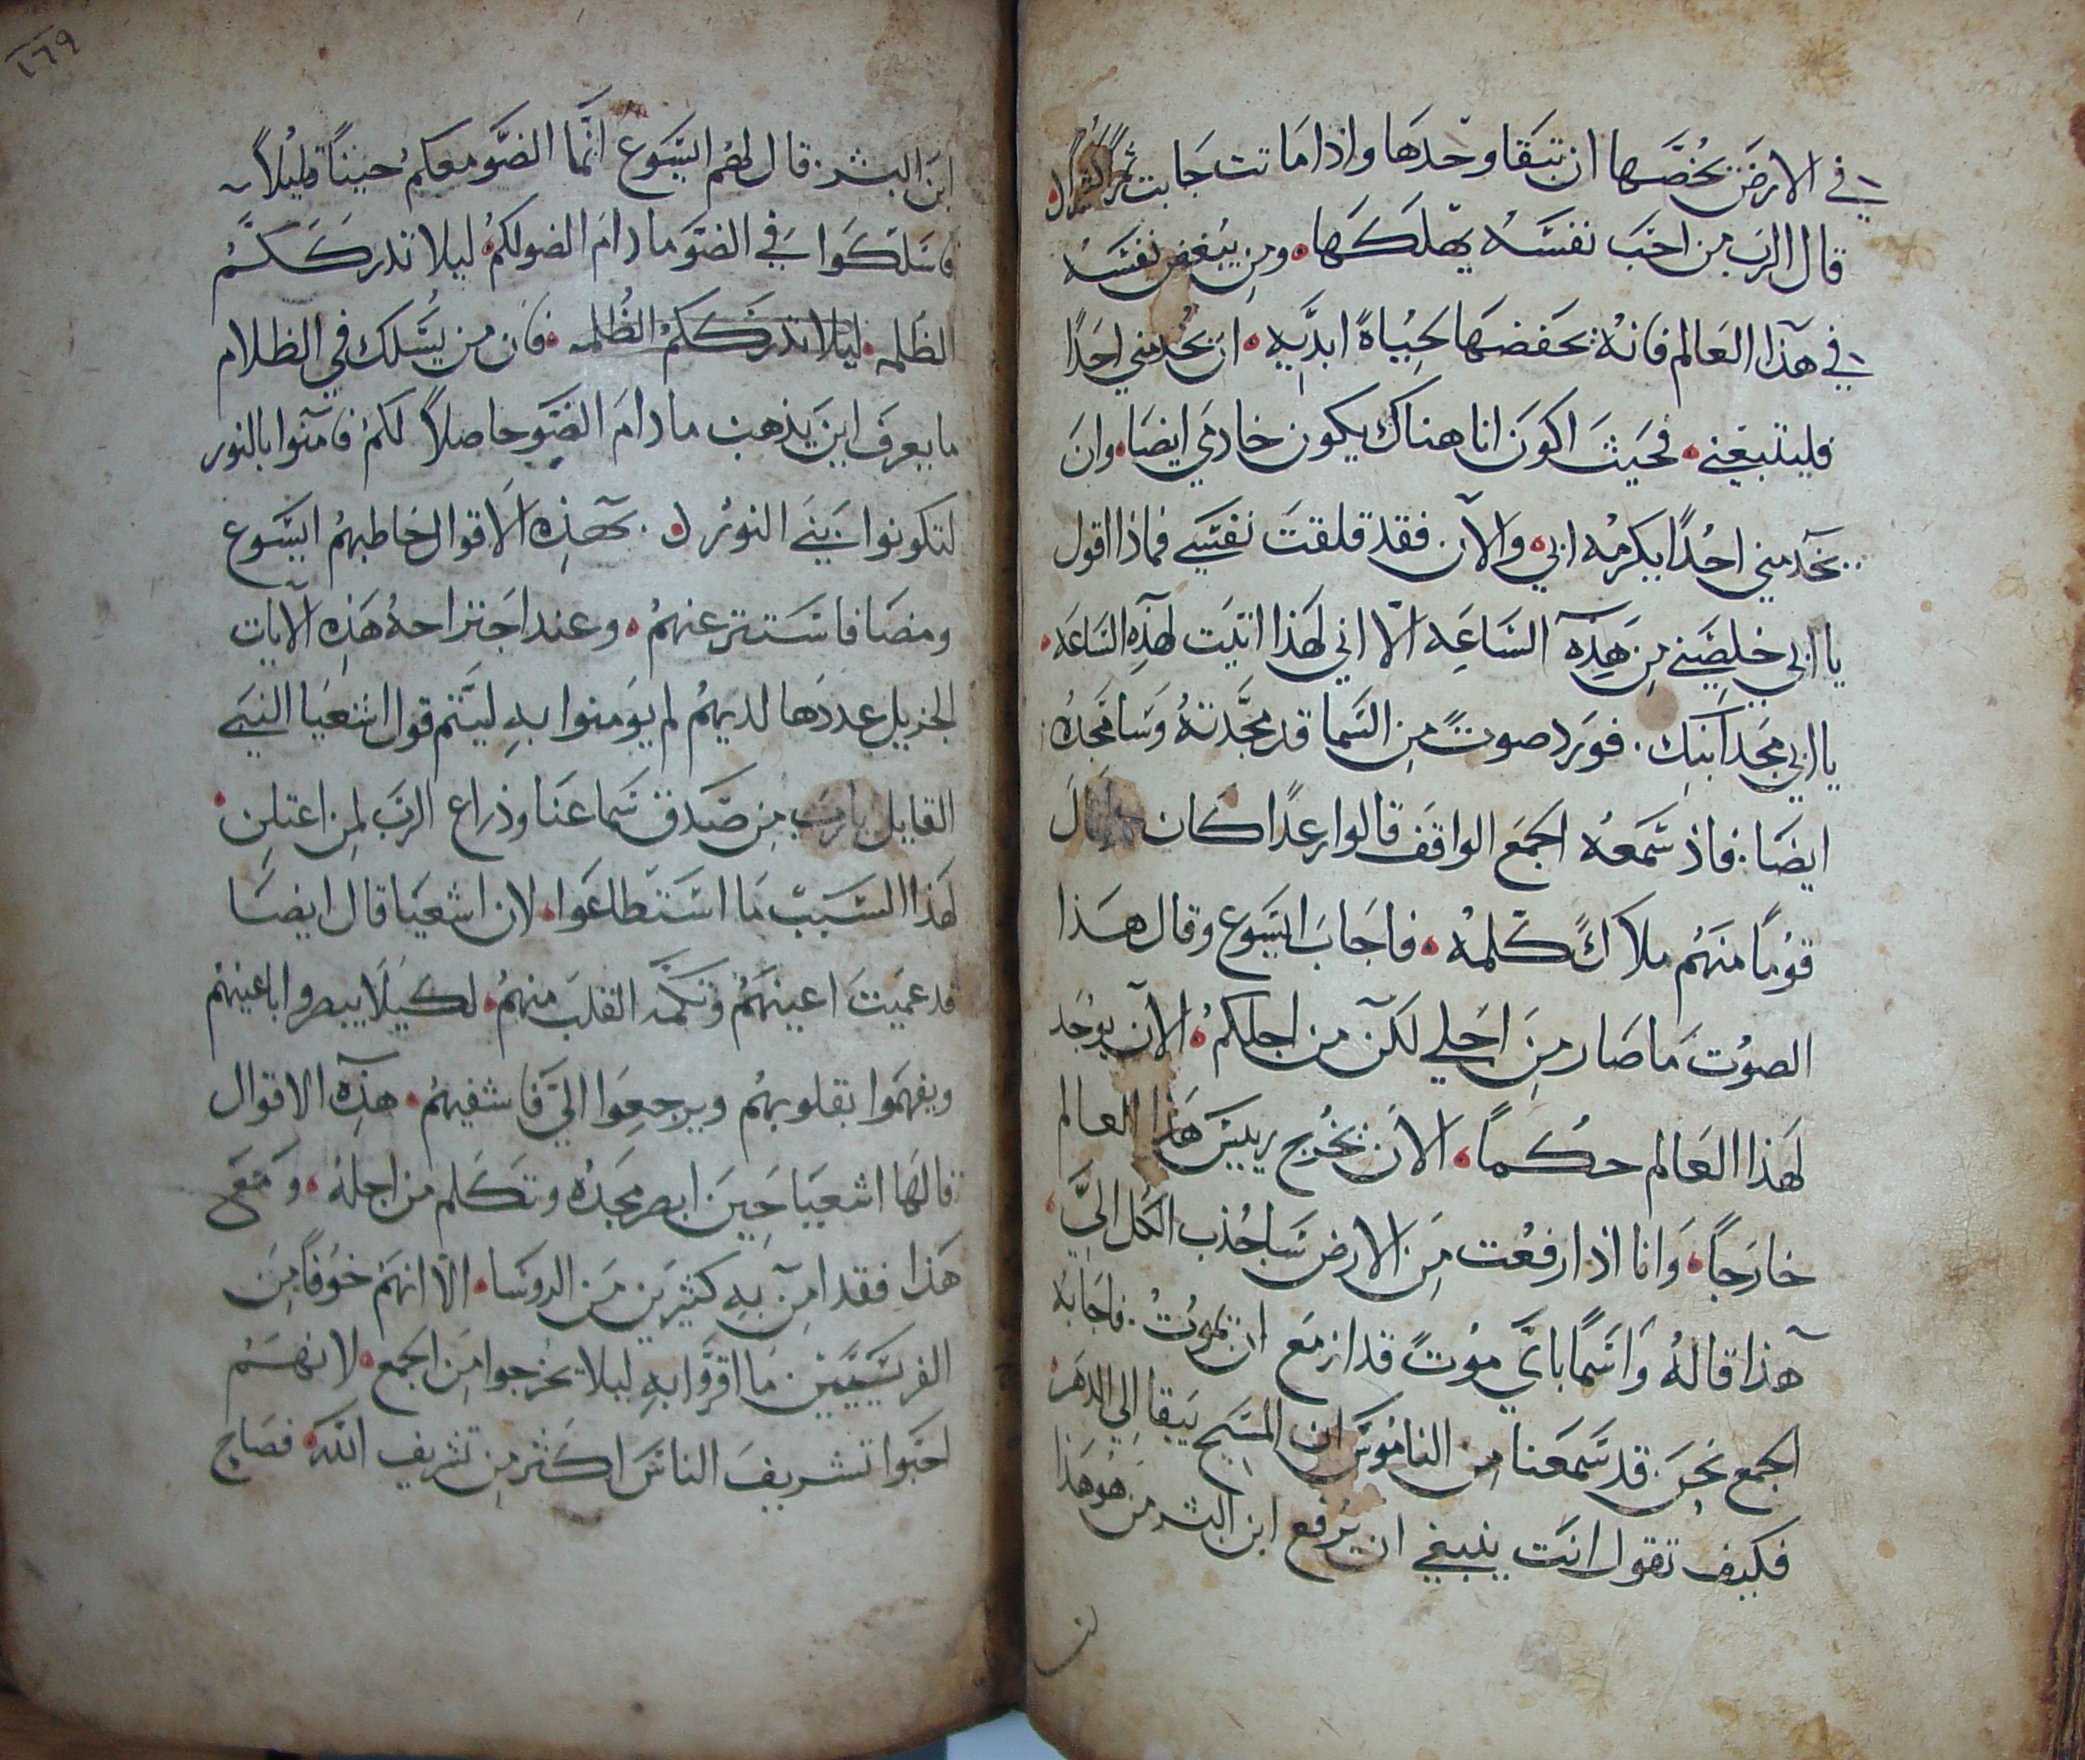 في الارض يخصها ان تبقا وحدها واذا ماتت جابت ثمرًا كثيرًا
قال الرب من احب نفسه يهلكها ومن يبغض نفسه
في هذا العالم فانه يحفضها لحياة ابديه ان يخدمني احدًا
فليتبعني فحيث اكون انا هناك يكون خادمي ايضا وان
يخدمني احدًا يكرمه ابي والآن فقد قلقت نفسي فماذا اقول
يا ابي خلصني من هذه الساعه الّا اني لهذا اتيت لهذه الساعه
يا ابي مجد ابنك فورد صوتً من السما قد مجّدته وسامجده
ايضا فاذ سمعه الجمع الواقف قالوا رعدًا كان وقال
قومًا منهم ملاكً كلمه فاجاب ايسوع وقال هذا
الصوت ما صار من اجلي لكن من اجلكم الآن يوجد
لهذا العالم حكماً الان يخرج رييس هذا العالم
خارجاً وانا اذا رفعت من الارض ساجذب الكل اليَّ
هذا قاله واسمًا باي موتً قد ازمع ان يموت فاجابه
الجمع نحن قد سمعنا من الناموس ان المسيح يبقا الي الدهر
فكيف تقول انت ينبغي ان يرفع ابن البشر من هو هذا
١٦٩
ابن البشر قال لهم ايسوع انّما الضو معكم حينًا قليلاً
فاسلكوا في الضو ما دام الضو لكم ليلا تدرككم
الظلمه ليلا تدرككم الظلمه فان من يسلك في الظلام
ما يعرف اين يذهب ما دام الضو حاصلاً لكم فامنوا بالنور
لتكونوا بني النور بهذه الاقوال خاطبهم ايسوع
ومضا فاستتر عنهم وعند اجتراحه هذه الآيات
الجزيل عددها لديهم لم يومنوا به ليتم قول اشعيا النبي
القايل يا رب من صدق سماعنا وذراع الرب لمن اعتلن
لهذا السبب ما استطاعوا لان اشعيا قال ايضا
قد عميت اعينهم وتكمّد القلب منهم لكيلا يبصروا باعينهم
ويفهموا بقلوبهم ويرجعوا اليَّ فاشفيهم هذه الاقوال
قالها اشعيا حين ابصر مجده وتكلم من اجله ومع
هذا فقد امن به كثيرين من الروسا الّا انهم خوفاً من
الفريسيين ما اقرّوا به ليلا يخرجوا من الجمع لانهم
احبوا تشريف الناس اكثر من تشريف الله فصاح